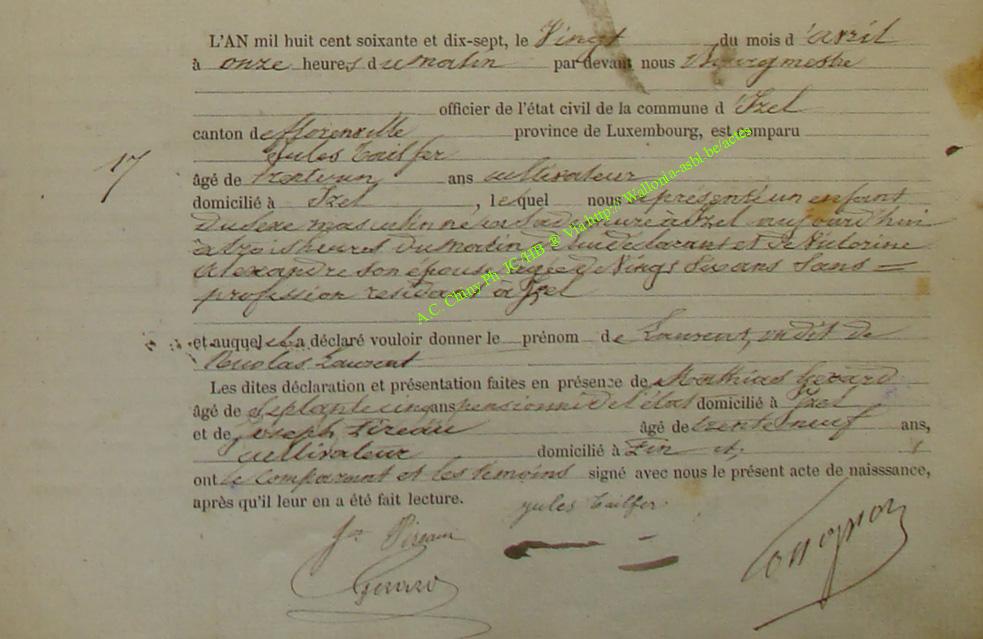 L'AN mil huit cent soixante et dix-sept, le Vingt du mois d'avril
à onze heures du matin par devant nous Bourgmestre
officier de l'état civil de la commune d'Izel
canton de Florenville province de Luxembourg, est comparu
17
Jules Tailfer
âgé de trente un ans cultivateur
domicilié à Izel, lequel nous a présenté un enfant
du sexe masculin né à sa demeure à Izel aujourd'hui
à trois heures du matin de lui déclarant et de Victorine
Alexandre son épouse agée de Vingt Six ans Sans =
profession residans à Izel
et auquel il a déclaré vouloir donner le prénom de Laurent,
Nicolas Laurent
Les dites déclaration et présentation faites en présence de Mathias Gerard
âgé de Septante cinq ans pensionné de l'état domicilié à Izel
et de Joseph Pireau âgé de trente neuf ans,
cultivateur domicilié à Pin et
ont le comparant et les témoins signé avec nous le présent acte de naisssance,
après qu'il leur en a été fait lecture.
Jules Tailfer
Jh Pireau
Gerard
A.C. Chiny Ph JC/HB @ Via http://Wallonia-asbl.be/actes